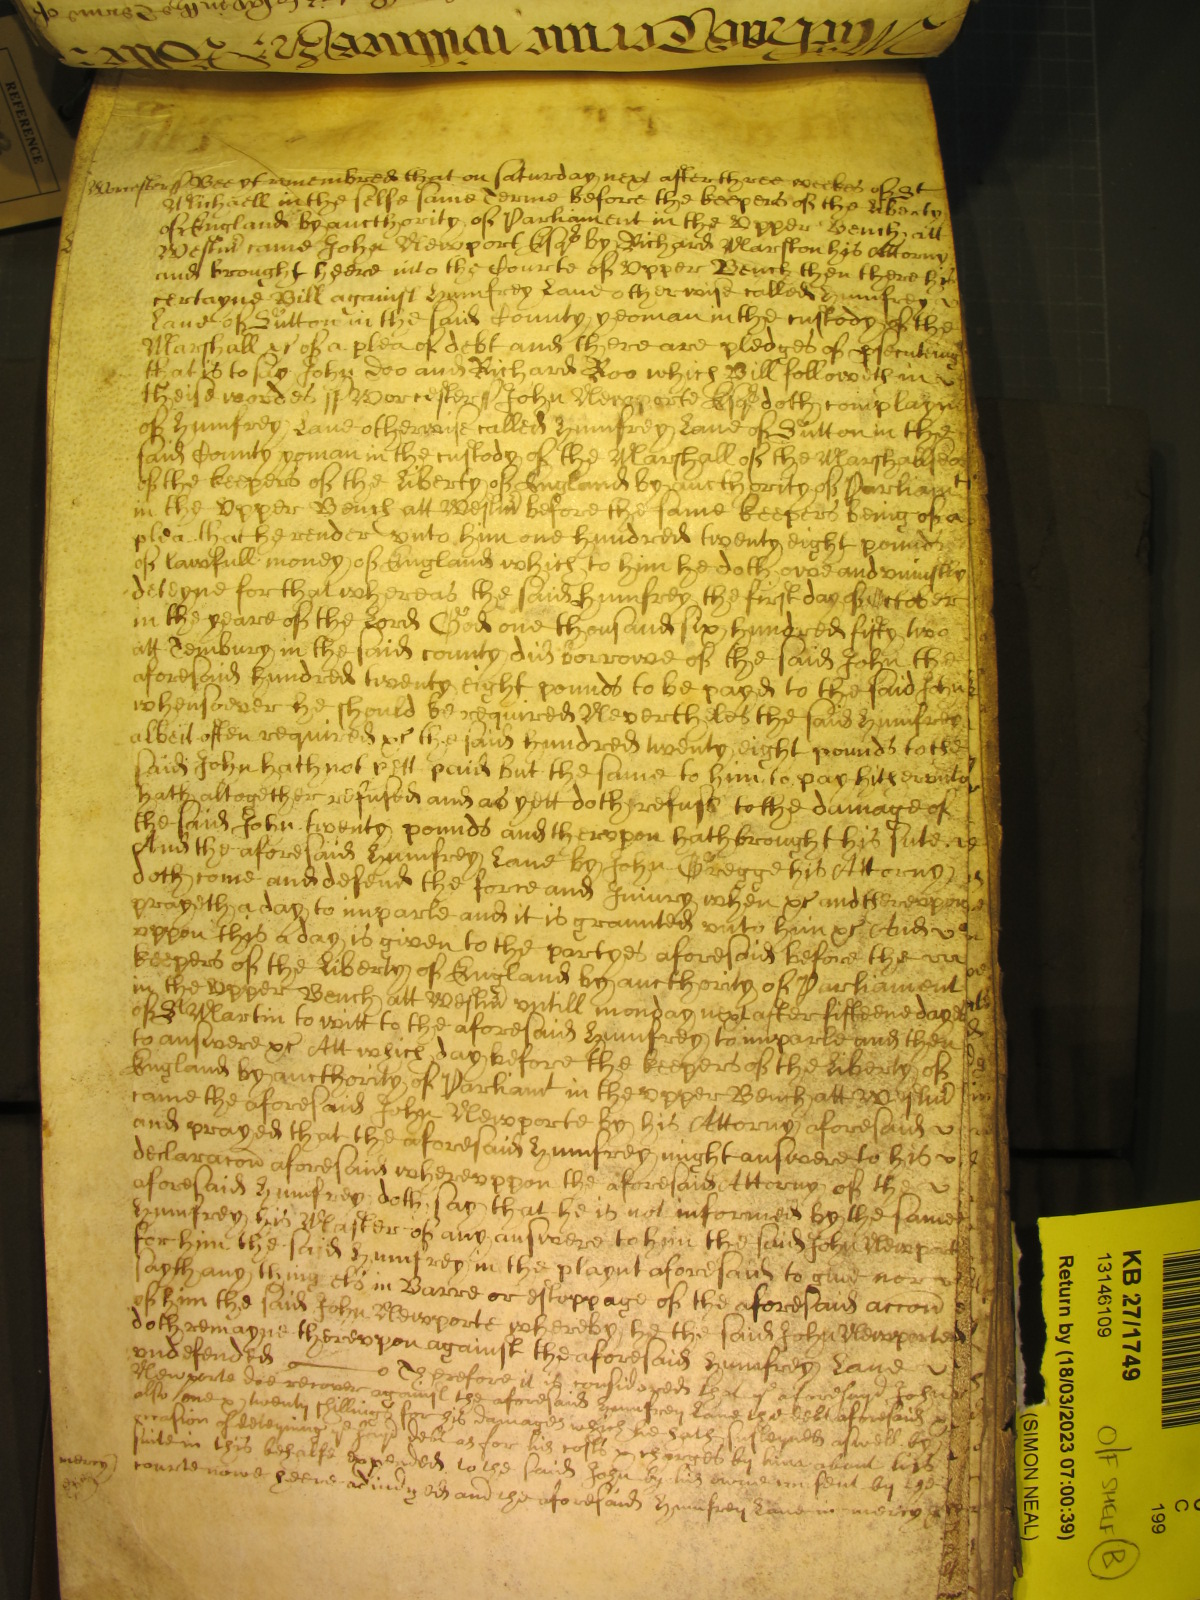 REFERENCE
Worcester ss Bee yt remembred that on Saturday next after three weekes of St
Michaell in the selfe same Terme before the keepers of the liberty
of England by aucthority of Parliament in the Upper Bench att
Westmr came John Newport Esqr by Richard Marston his Attorny
and brought heere into the Courte of Upper Bench then there his
certayne Bill against Humfrey Lane otherwise called Humfrey
Lane of Sutton in the said County yeoman in the custody of the
Marshall &c of a plea of debt and there are pledges of prosecuting
that is to say John Doo and Richard Roo which Bill followeth in
theise wordes ss Worcester ss John Newporte Esqr doth complayne
of Humfrey Lane otherwise called Humfrey Lane of Sutton in the
said County yoman in the custody of the Marshall of the Marshallsea
of the keepers of the liberty of England by aucthority of Parliamt
in the Upper Bench att Westmr before the same keepers being of a
plea that he render unto him one hundred twenty eight pounds
of lawfull money of England which to him he doth owe and uniustly
deteyne for that whereas the said Humfrey the first day of October
in the yeare of the Lord God one thousand six hundred fifty two
att Tembury in the said county did borrowe of the said John the
aforesaid hundred twenty eight pounds to be payd to the said John
whensoever he should be required Neverthelesthe said Humfrey
albeit often required &c the said hundred twenty eight pounds to the
said John hath not yett paid but the same to him to pay hitherunto
hath altogether refused and as yett doth refuse to the damage of
the said John twenty pounds and therupon hath brought his sute &c
And the aforesaid Humfrey Lane by John Gregge his Attorny
doth come and defend the force and Iniury when &c and thereupon
prayeth a day to imparle and it is graunted unto him &c And
uppon this a day is given to the partyes aforesaid before the
keepers of the liberty of England by aucthority of Parliament
in the Upper Bench att Westmr untill monday next after fifteene dayes
of St Martin to witt to the aforesaid Humfrey to imparle and then
to answere &c Att which day before the keepers of the liberty of
England by aucthority of Parliamt in the Upper Bench att Westmr
came the aforesaid John Newporte by his Attorny aforesaid
and prayed that the aforesaid Humfrey might answere to his
declaracon aforesaid whereuppon the aforesaid Attorny of the
aforesaid Humfrey doth say that he is not informed by the same
Humfrey his Master of any answere to him the said John Newport
for him the said Humfrey in the playnt aforesaid to give nor
sayth any thing els in Barre or estoppage of the aforesaid accon
of him the said John Newporte whereby he the said John Newporte
doth remayne thereupon against the aforesaid Humfrey Lane
undefended Therefore it is considered that ye aforesayd John
Newporte doe recover against the aforesaid Humfrey Lane the debt aforesaid &
also one & twenty shillings for his damages which he hath susteyned aswell by
occasion of deteyning ye said debt as for his costs & charges by him about his
suite in this behalfe expended to the said John by his owne assent by the
courte nowe heere adiudged and the aforesaid Humfrey Lane in mercy
mercy
KB 27/1749
13146109
Return by (18/03/2023 07:00:39)
(SIMON NEAL)
C
199
O/F SHELF B